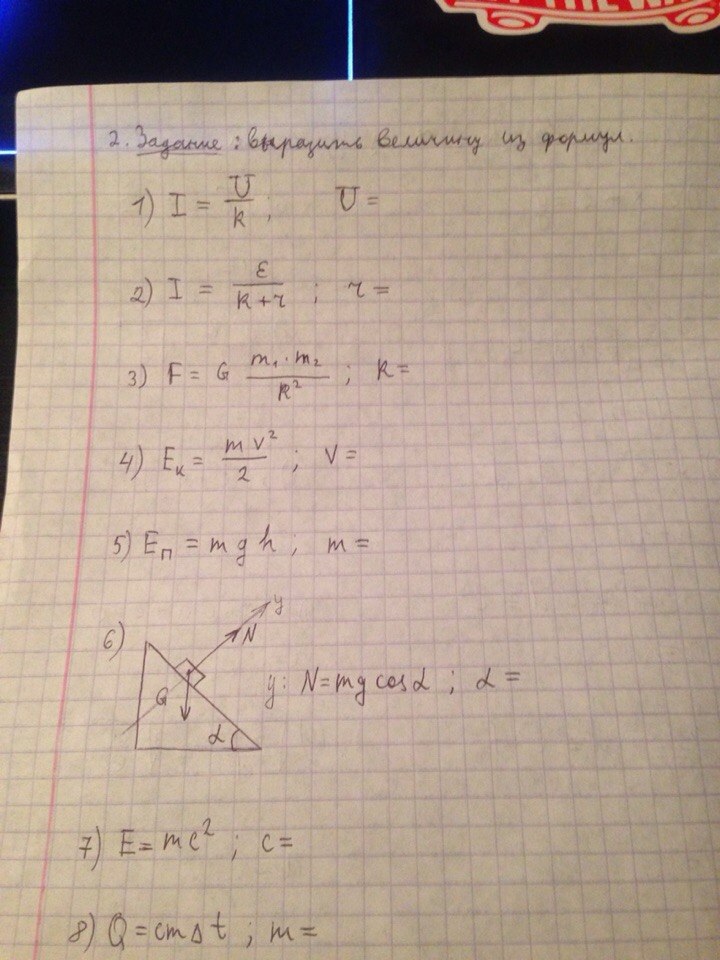 THE WA
2. Задание: выразить величину из формул.
1) I = U/R; U =
2) I = ε/(R+r); r =
3) F = G m₁·m₂/R²; R =
4) Eк = mv²/2; v =
5) Eп = mgh; m =
6) y N G α y: N=mg cosα; α =
7) E=mc²; c=
8) Q=cmΔt; m=